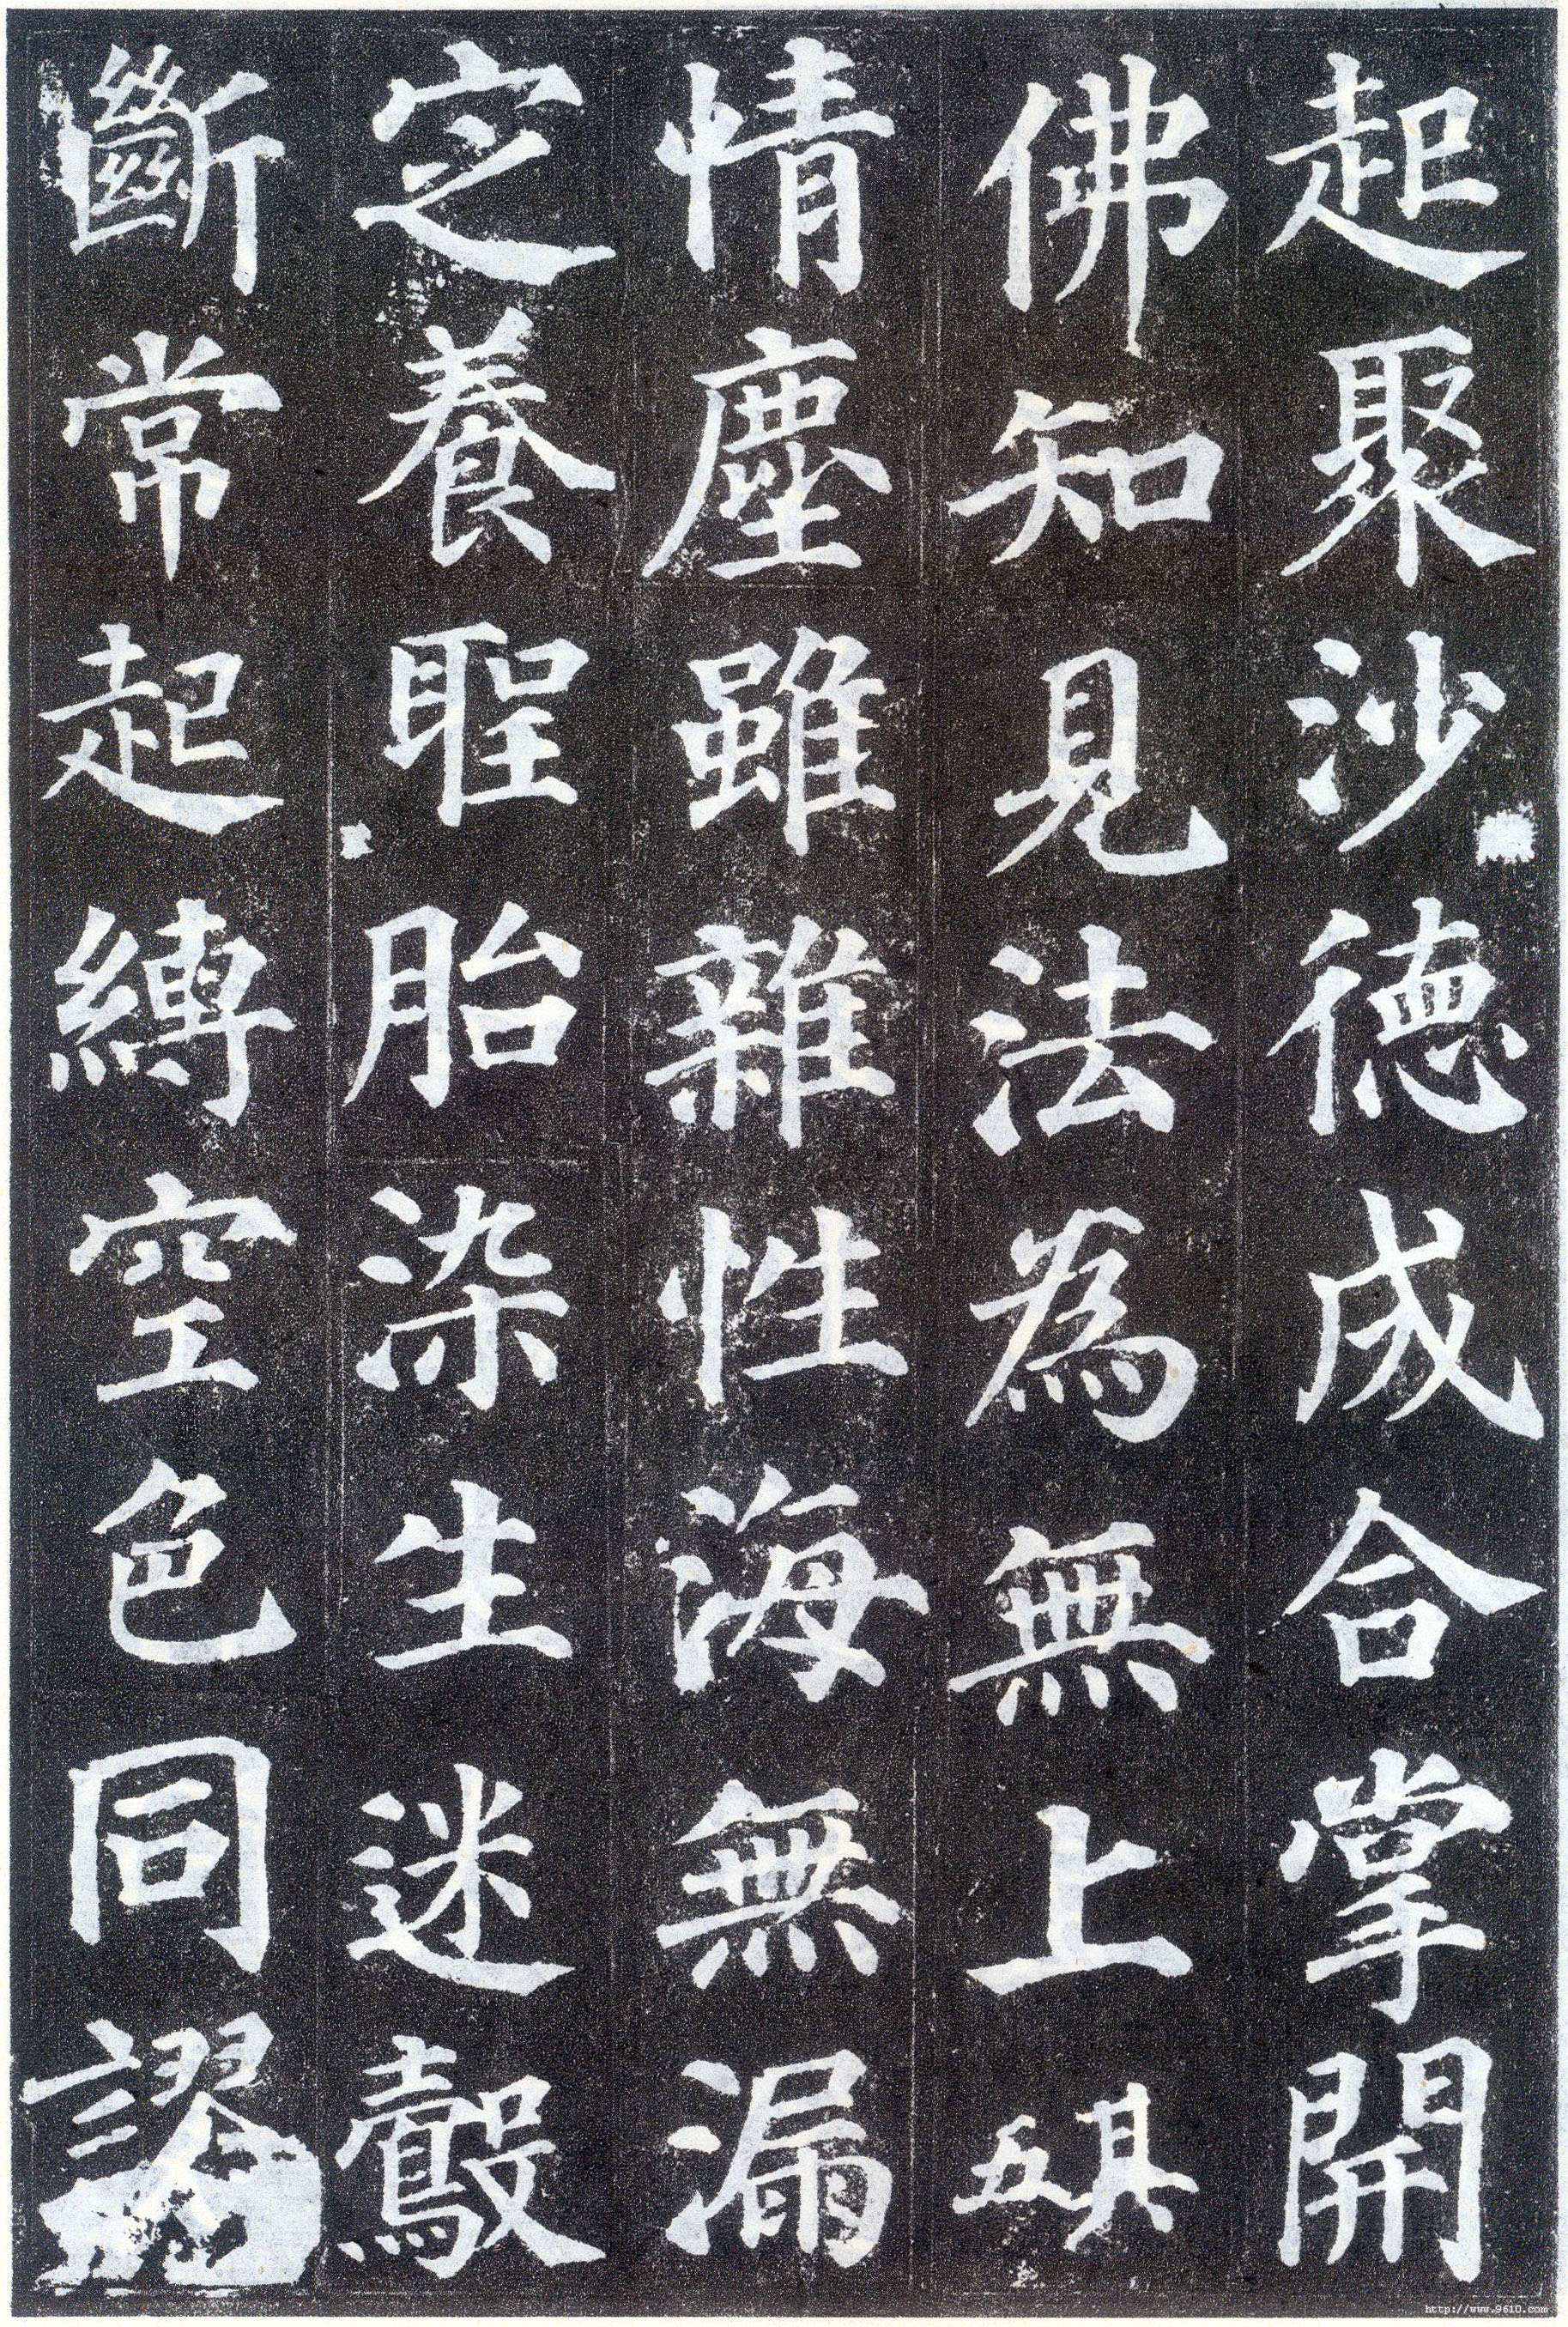 起聚沙德成合掌開
佛知見法為無上其五
情塵雖雜性海無漏
定養聖胎染生迷鷇
斷常起縛空色同謬
http://www.9610.com